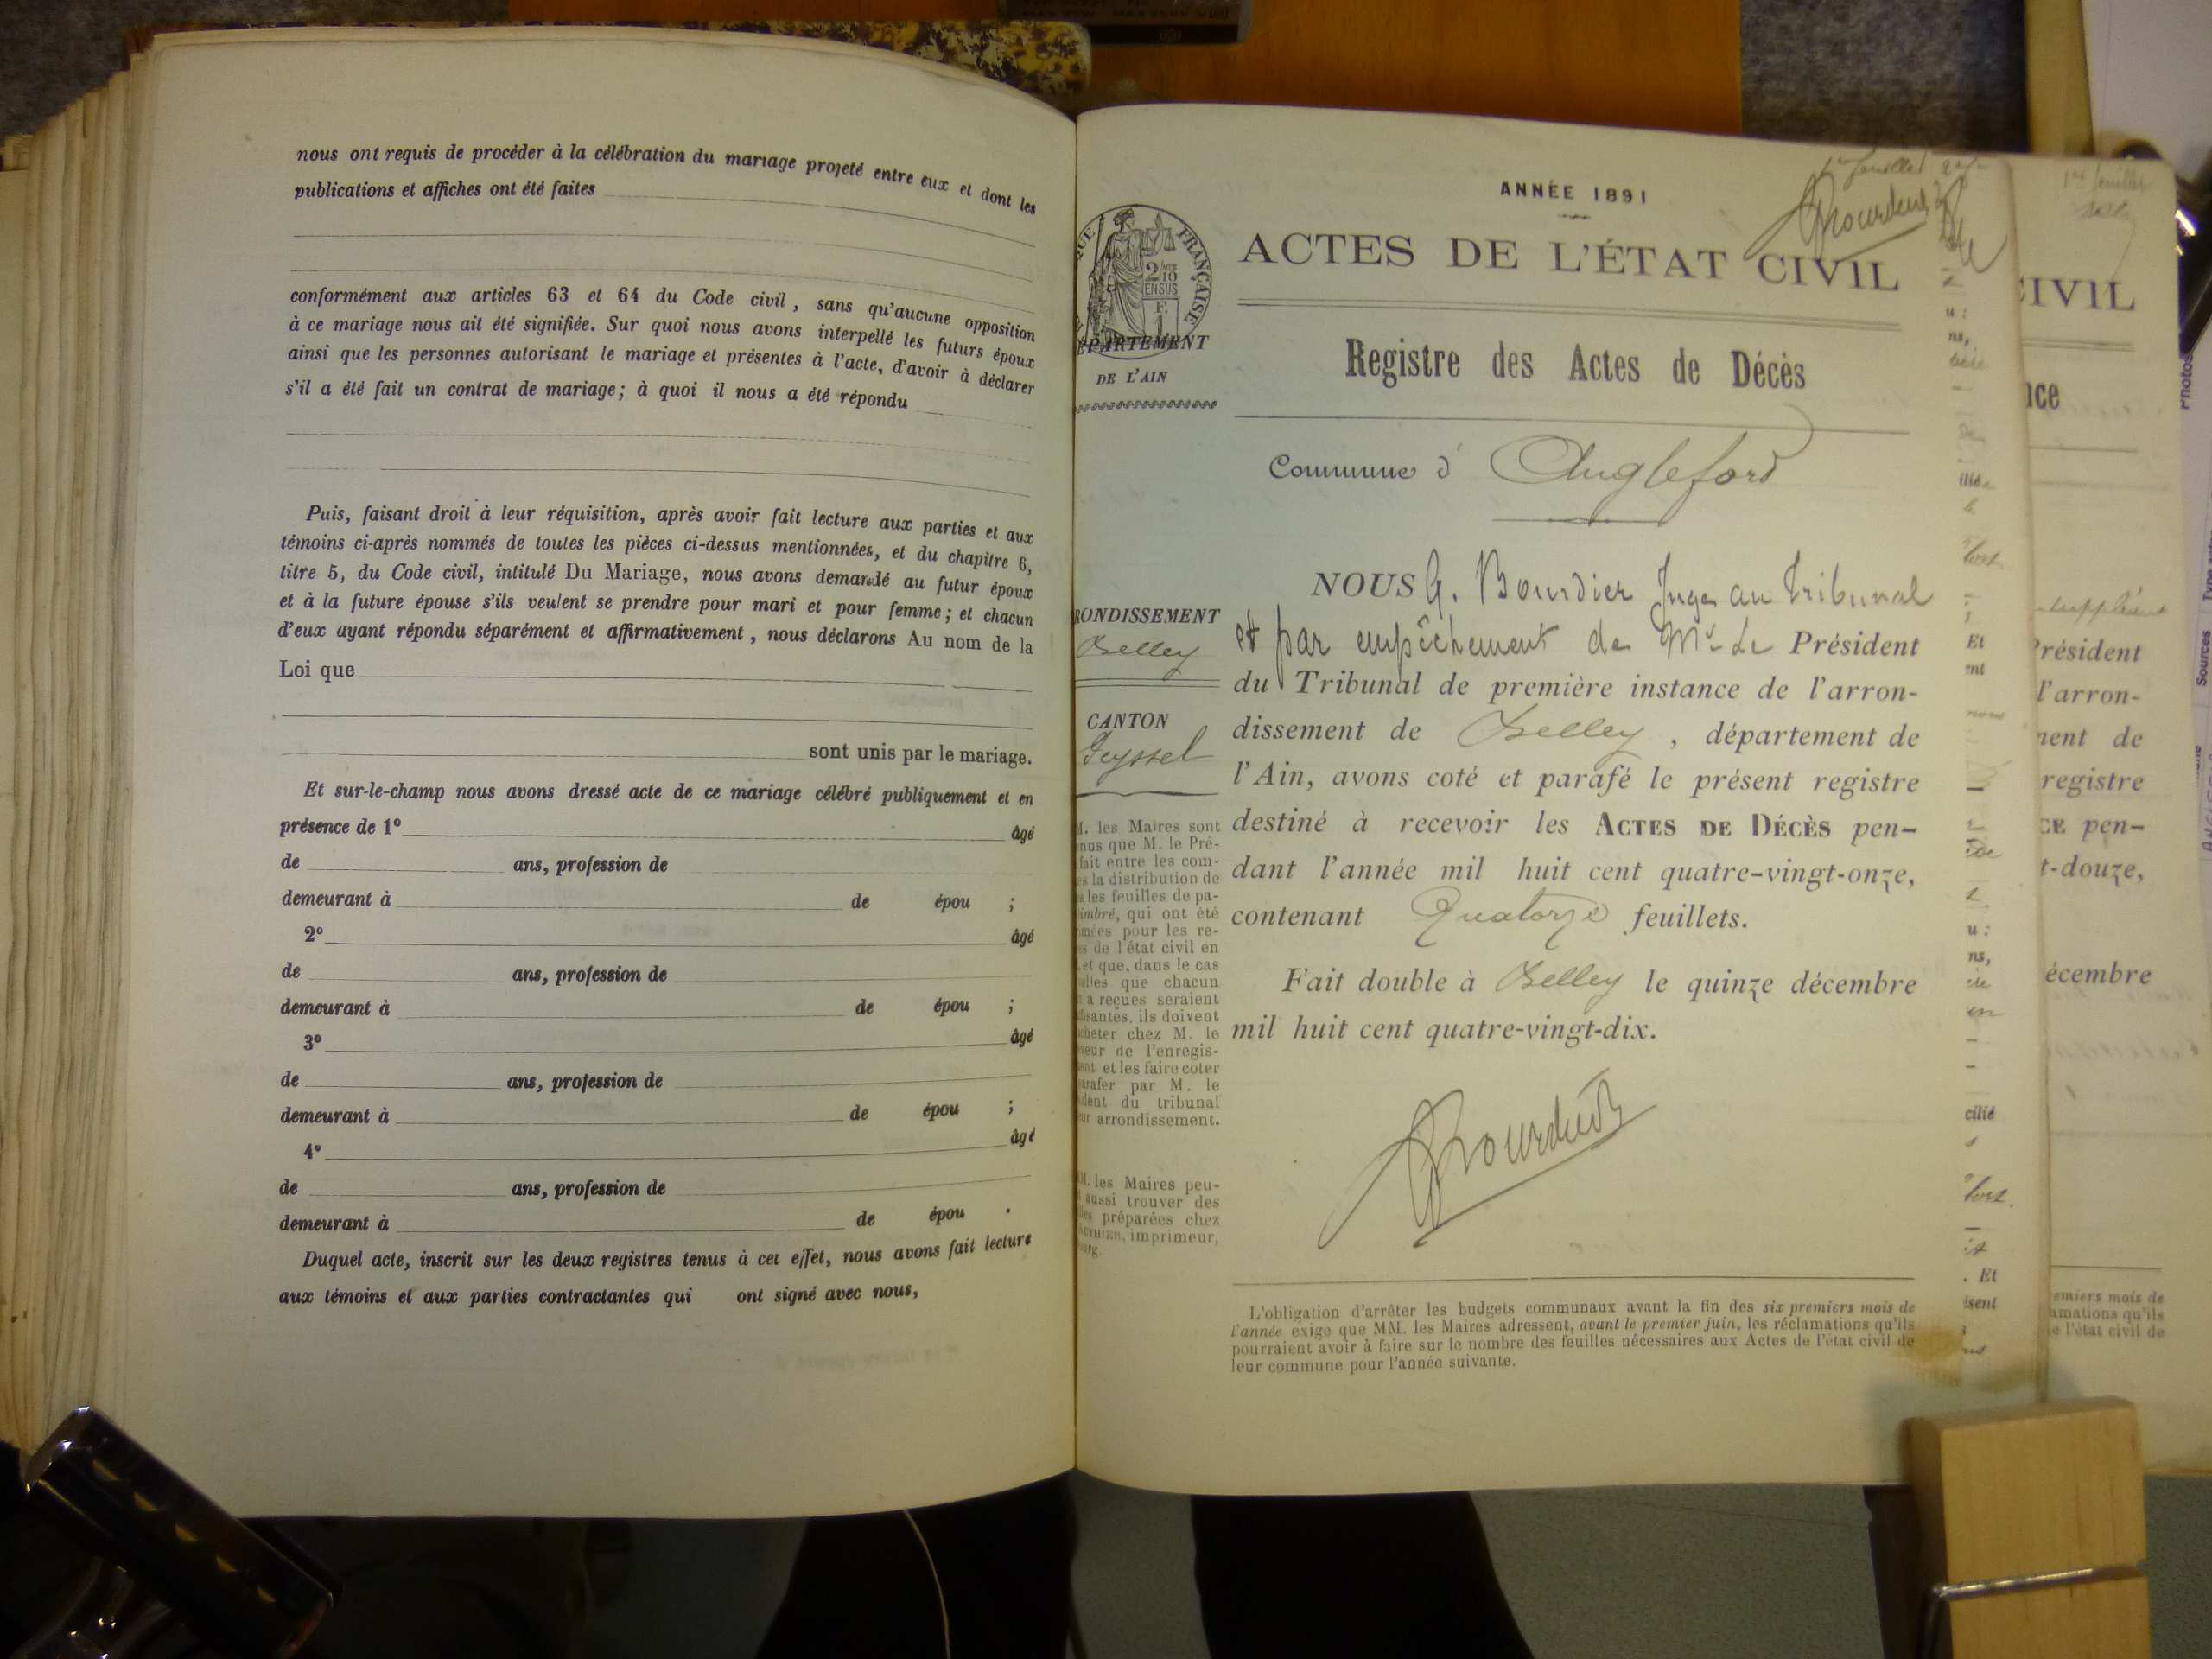 nous ont requis de procéder à la célébration du mariage projeté entre eux et dont les
publications et affiches ont été faites
conformément aux articles 63 et 64 du Code civil, sans qu'aucune opposition
à ce mariage nous ait été signifiée. Sur quoi nous avons interpellé les futurs époux
ainsi que les personnes autorisant le mariage et présentes à l'acte, d'avoir à déclarer
s'il a été fait un contrat de mariage; à quoi il nous a été répondu
Puis, faisant droit à leur réquisition, après avoir fait lecture aux parties et aux
témoins ci-après nommés de toutes les pièces ci-dessus mentionnées, et du chapitre 6,
titre 5, du Code civil, intitulé Du Mariage, nous avons demandé au futur époux
et à la future épouse s'ils veulent se prendre pour mari et pour femme; et chacun
d'eux ayant répondu séparément et affirmativement, nous déclarons Au nom de la
Loi que
sont unis par le mariage.
Et sur-le-champ nous avons dressé acte de ce mariage célébré publiquement et en
présence de 1° âgé
de ans, profession de
demeurant à de épou ;
2° âgé
de ans, profession de
demeurant à de épou ;
3° âgé
de ans, profession de
demeurant à de épou ;
4° âgé
de ans, profession de
demeurant à de épou .
Duquel acte, inscrit sur les deux registres tenus à cet effet, nous avons fait lecture
aux témoins et aux parties contractantes qui ont signé avec nous,
ANNÉE 1891
ACTES DE L'ÉTAT CIVIL
FRANÇAISE
DÉPARTEMENT
DE L'AIN
Registre des Actes de Décès
Commune d' Anglefort
NOUS G. Bourdier Juge au Tribunal
et par empêchement de Mr Le Président
du Tribunal de première instance de l'arron-
dissement de Belley, département de
l'Ain, avons coté et parafé le présent registre
destiné à recevoir les ACTES DE DÉCÈS pen-
dant l'année mil huit cent quatre-vingt-onze,
contenant Quatorze feuillets.
Fait double à Belley le quinze décembre
mil huit cent quatre-vingt-dix.
Bourdier
L'obligation d'arrêter les budgets communaux avant la fin des six premiers mois de
l'année exige que MM. les Maires adressent, avant le premier juin, les réclamations qu'ils
pourraient avoir à faire sur le nombre des feuilles nécessaires aux Actes de l'état civil de
leur commune pour l'année suivante.
RONDISSEMENT
Belley
CANTON
Seyssel
M. les Maires sont
nus que M. le Pré-
fait entre les com-
es la distribution de
s les feuilles de pa-
imbré, qui ont été
mées pour les re-
s de l'état civil en
et que, dans le cas
elles que chacun
a reçues seraient
isantes, ils doivent
cheter chez M. le
veur de l'enregis-
ent et les faire coter
arafer par M. le
ident du tribunal
ur arrondissement.
M. les Maires peu-
aussi trouver des
les préparées chez
imprimeur,
CIVIL
nce
Président
l'arron-
ment de
registre
CE pen-
t-douze,
écembre
emiers mois de
lamations qu'ils
e l'état civil de
Photos
Sources